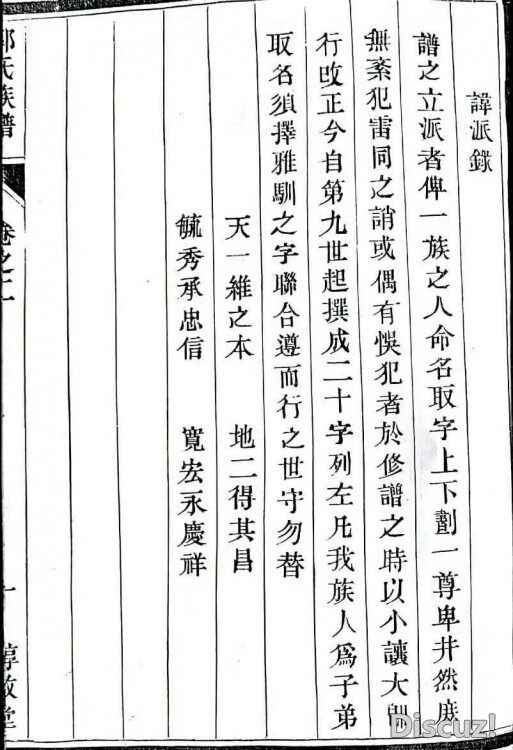 諱派錄
譜之立派者俾一族之人命名取字上下劃一尊卑井然庶
無紊犯雷同之誚或偶有悞犯者於修譜之時以小讓大即
行改正今自第九世起撰成二十字列左凡我族人為子弟
取名須擇雅馴之字聯合遵而行之世守勿替
天一維之本 地二得其昌
毓秀承忠信 寬宏永慶祥
氏族譜 卷之二 十 敦堂
Discuz!